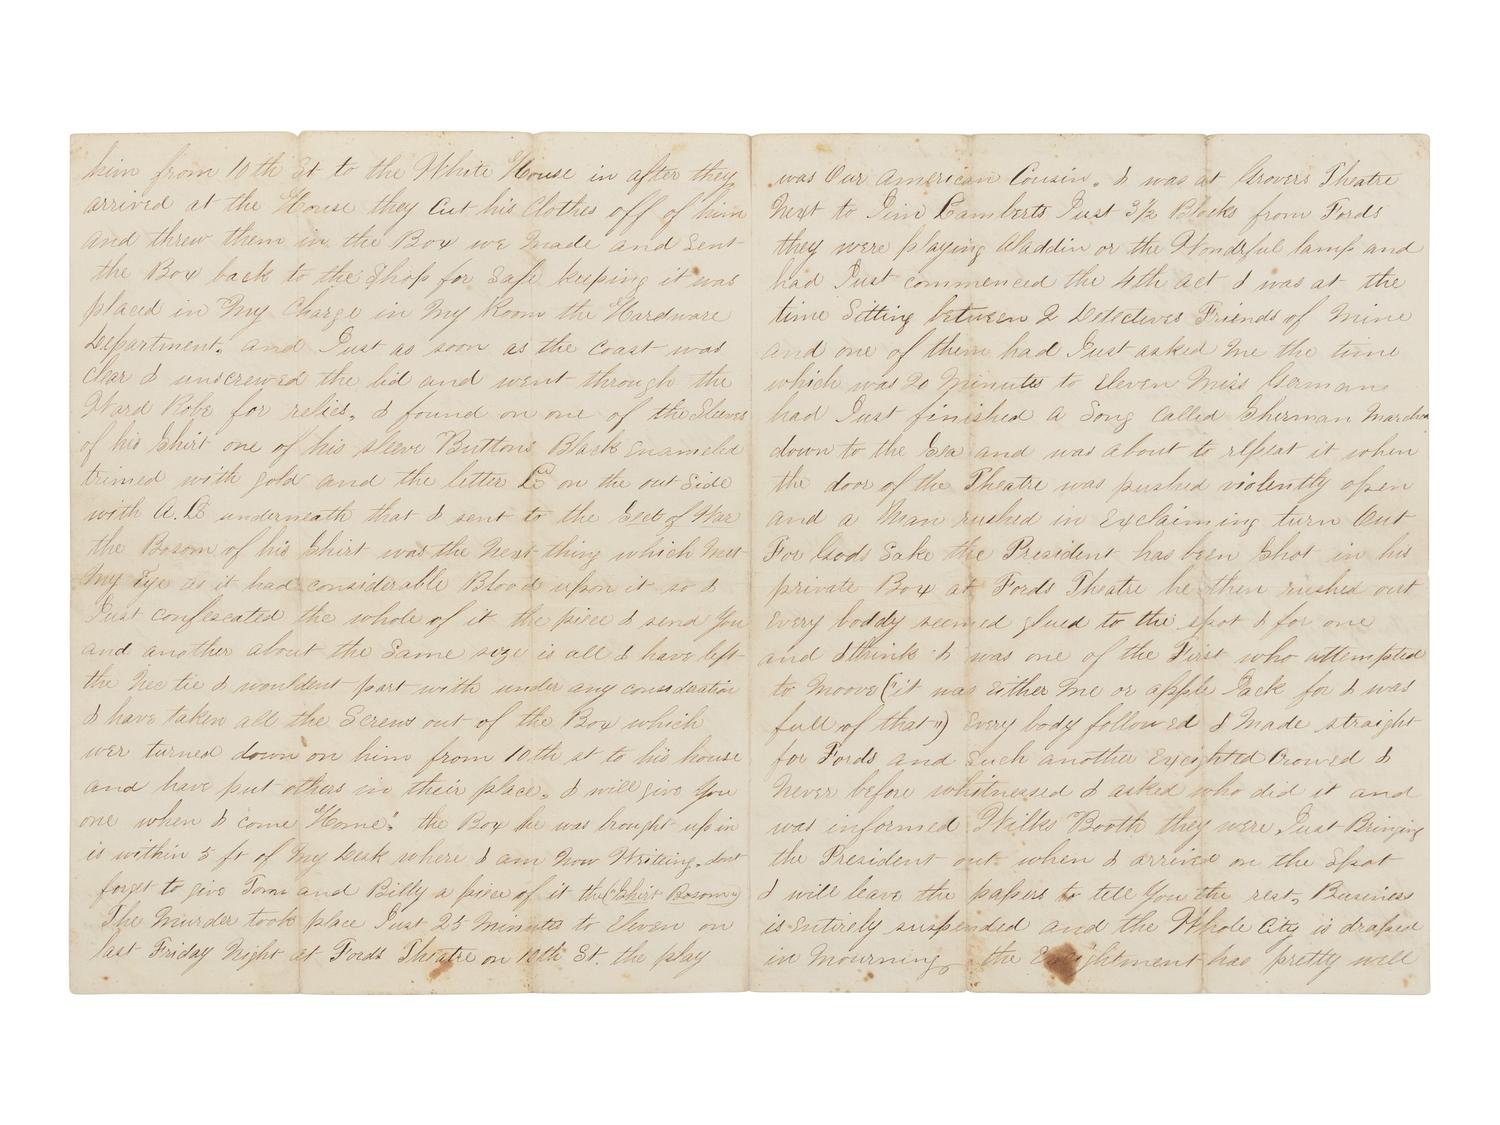 him from 10th St to the White House in after they
arrived at the House they Cut his Clothes off of him
and threw them in the Box we Made and Sent
the Box back to the Shop for Safe keeping it was
placed in My Charge in My Room the Hardware
Department. and Just as soon as the Coast was
Clear I unscrewed the lid and went through the
Ward Robe for relics. I found on one of the Sleeves
of his Shirt one of his sleeve Buttons Black Enameled
trimed with gold and the letter L on the out Side
with A.L underneath that I sent to the Sect of War
the Bosom of his Shirt was the Next thing which Met
My Eye as it had considerable Blood upon it so I
Just confescated the whole of it the piece I send You
and another about the Same size is all I have left
the Nec tie I wouldent part with under any consideration
I have taken all the Screws out of the Box which
wer turned down on him from 10th st to his house
and have put others in their place. I will give You
one when I come Home. the Box he was brought up in
is within 5 ft of My Desk where I am Now Writeing. dont
forget to give Tom and Billy a piece of it the (Shirt Bosom)
The Murder took place Just 25 Minutes to Eleven on
last Friday Night at Fords Theatre on 10th St. the play
was Our American Cousin. I was at Grovers Theatre
Next to Jim Lamberts Just 3½ Blocks from Fords
they were playing Aladdin or the Wonderful lamp and
had Just commenced the 4th act I was at the
time Sitting between 2 Detectives Friends of Mine
and one of them had Just asked Me the time
which was 20 Minutes to Eleven Miss German
had Just finished a Song Called Sherman Marches
down to the Sea and was about to repeat it when
the door of the Theatre was pushed violently open
and a Man rushed in Exclaiming turn Out
For Gods Sake the President has been Shot in his
private Box at Fords Theatre he then rushed out
Every boddy seemed glued to the spot I for one
and I think I was one of the First who attempted
to Moove ("it was Either Me or apple Jack for I was
full of that") Every body followed I Made straight
for Fords and Such another Exeighted Crowed I
Never before whitnessed I asked who did it and
was informed Wilks Booth they were Just Bringing
the President out when I arrived on the Spot
I will leave the papers to tell You the rest. Business
is Entirely suspended and the Whole City is draped
in Mourning the Exeightment has pretty well